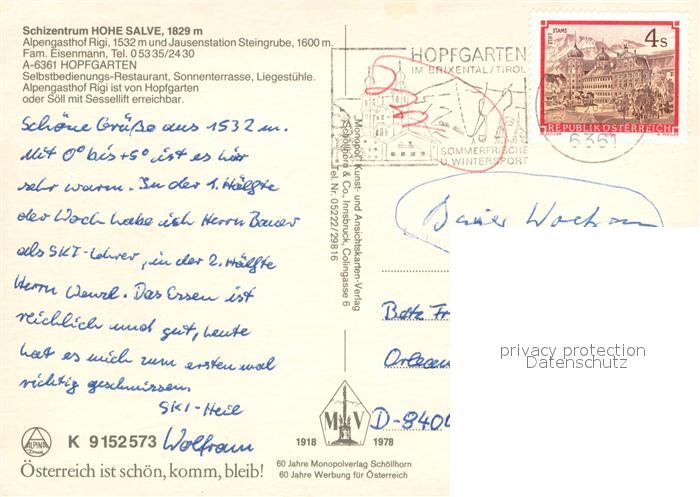 Schizentrum HOHE SALVE, 1829 m
Alpengasthof Rigi, 1532 m und Jausenstation Steingrube, 1600 m.
Fam. Eisenmann, Tel. 0 53 35/24 30
A-6361 HOPFGARTEN
Selbstbedienungs-Restaurant, Sonnenterrasse, Liegestühle.
Alpengasthof Rigi ist von Hopfgarten
oder Söll mit Sessellift erreichbar.
Schöne Grüße aus 1532 m.
Mit 0° bis +5° ist es hier
sehr warm. In der 1. Hälfte
der Woche habe ich Herrn Bauer
als SKI-Lehrer, in der 2. Hälfte
Herrn Wenzl. Das Essen ist
reichlich und gut, heute
hat es mich zum ersten mal
richtig geschmissen.
SKI-Heil
Wolfram
ALPINA
K 9152573
Österreich ist schön, komm, bleib!
"Monopol" Kunst- und Ansichtskarten-Verlag
Schöllhorn & Co., Innsbruck, Colingasse 6
Tel. Nr. 05222/29816
M V
1918 1978
60 Jahre Monopolverlag Schöllhorn
60 Jahre Werbung für Österreich
HOPFGARTEN
IM BRIXENTAL/TIROL
SOMMERFRISCHE
U. WINTERSPORT
6361
STIFT STAMS
4 S
REPUBLIK ÖSTERREICH
D-8400
privacy protection
Datenschutz